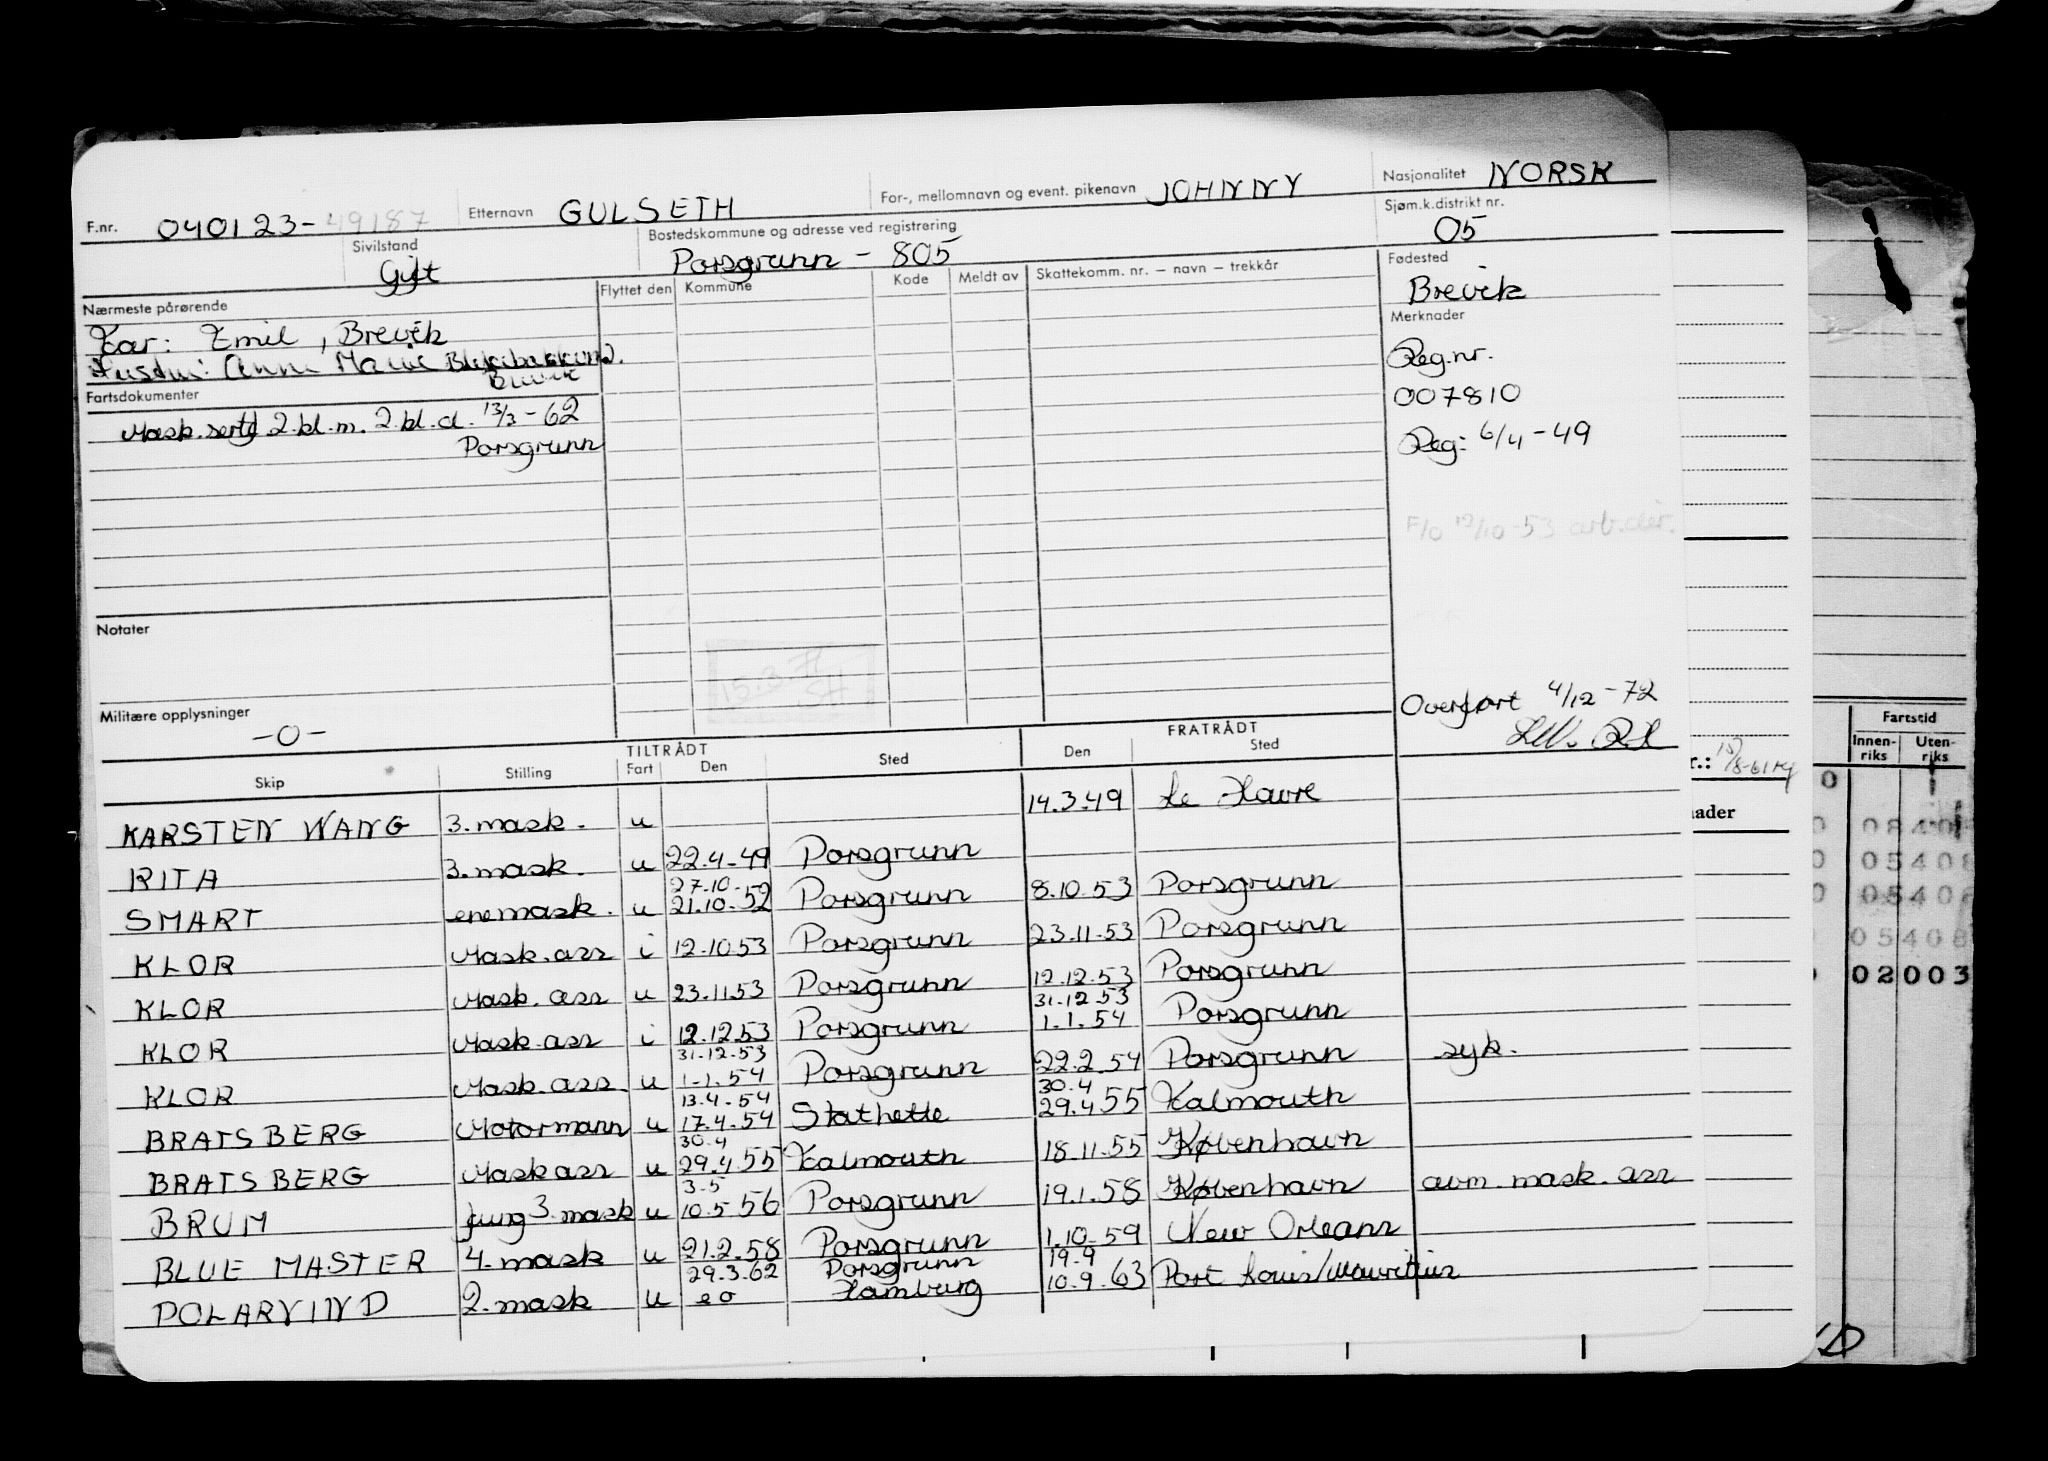 F.nr. 040123-49187 Etternavn GULSETH For-, mellomnavn og event. pikenavn JOHNNY Nasjonalitet NORSK
Sivilstand Gift Bostedskommune og adresse ved registrering Porsgrunn - 805 Sjøm.k.distrikt nr. 05
Nærmeste pårørende Flyttet den Kommune Kode Meldt av Skattekomm. nr. — navn — trekkår Fødested
Brevik
Far: Emil, Brevik
Merknader
Hustru: Anne Marie
Brevik
Reg.nr.
Fartsdokumenter
007810
Mask.sertf 2.kl.m. 2.kl.d. 13/3-62
Porsgrunn
Reg: 6/4-49
F/O 19/10-53 arb.dir.
Notater
15.3.
Militære opplysninger
-0-
Overført 4/12-72
TILTRÅDT FRATRÅDT
Skip Stilling Fart Den Sted Den Sted
KARSTEN WANG 3.mask. u 14.3.49 Le Havre
RITA 3.mask. u 22.4-49 Porsgrunn
SMART enemask. u 27.10- 21.10-52 Porsgrunn 8.10.53 Porsgrunn
KLOR Mask.ass i 12.10.53 Porsgrunn 23.11.53 Porsgrunn
KLOR Mask.ass u 23.11.53 Porsgrunn 12.12.53 Porsgrunn
KLOR Mask.ass i 12.12.53 Porsgrunn 31.12.53 1.1.54 Porsgrunn
KLOR Mask.ass. u 31.12.53 1.1.54 Porsgrunn 22.2.54 Porsgrunn syk.
BRATSBERG Motormann u 13.4.54 17.4.54 Stathelle 30.4 29.4.55 Falmouth
BRATSBERG Mask ass u 30.4 29.4.55 Falmouth 18.11.55 København
BRUM fung 3.mask u 3.5 10.5 56 Porsgrunn 19.1.58 København avm. mask. ass
BLUE MASTER 4.mask u 21.2.58 Porsgrunn 1.10.59 New Orleans
POLARVIND 2.mask u 29.3.62 Porsgrunn Hamburg 19.9 10.9.63 Port Louis/Mauritius
Fartstid
Innen-riks Uten-riks
ader
0 084
0 05408
0 05408
05408
02003